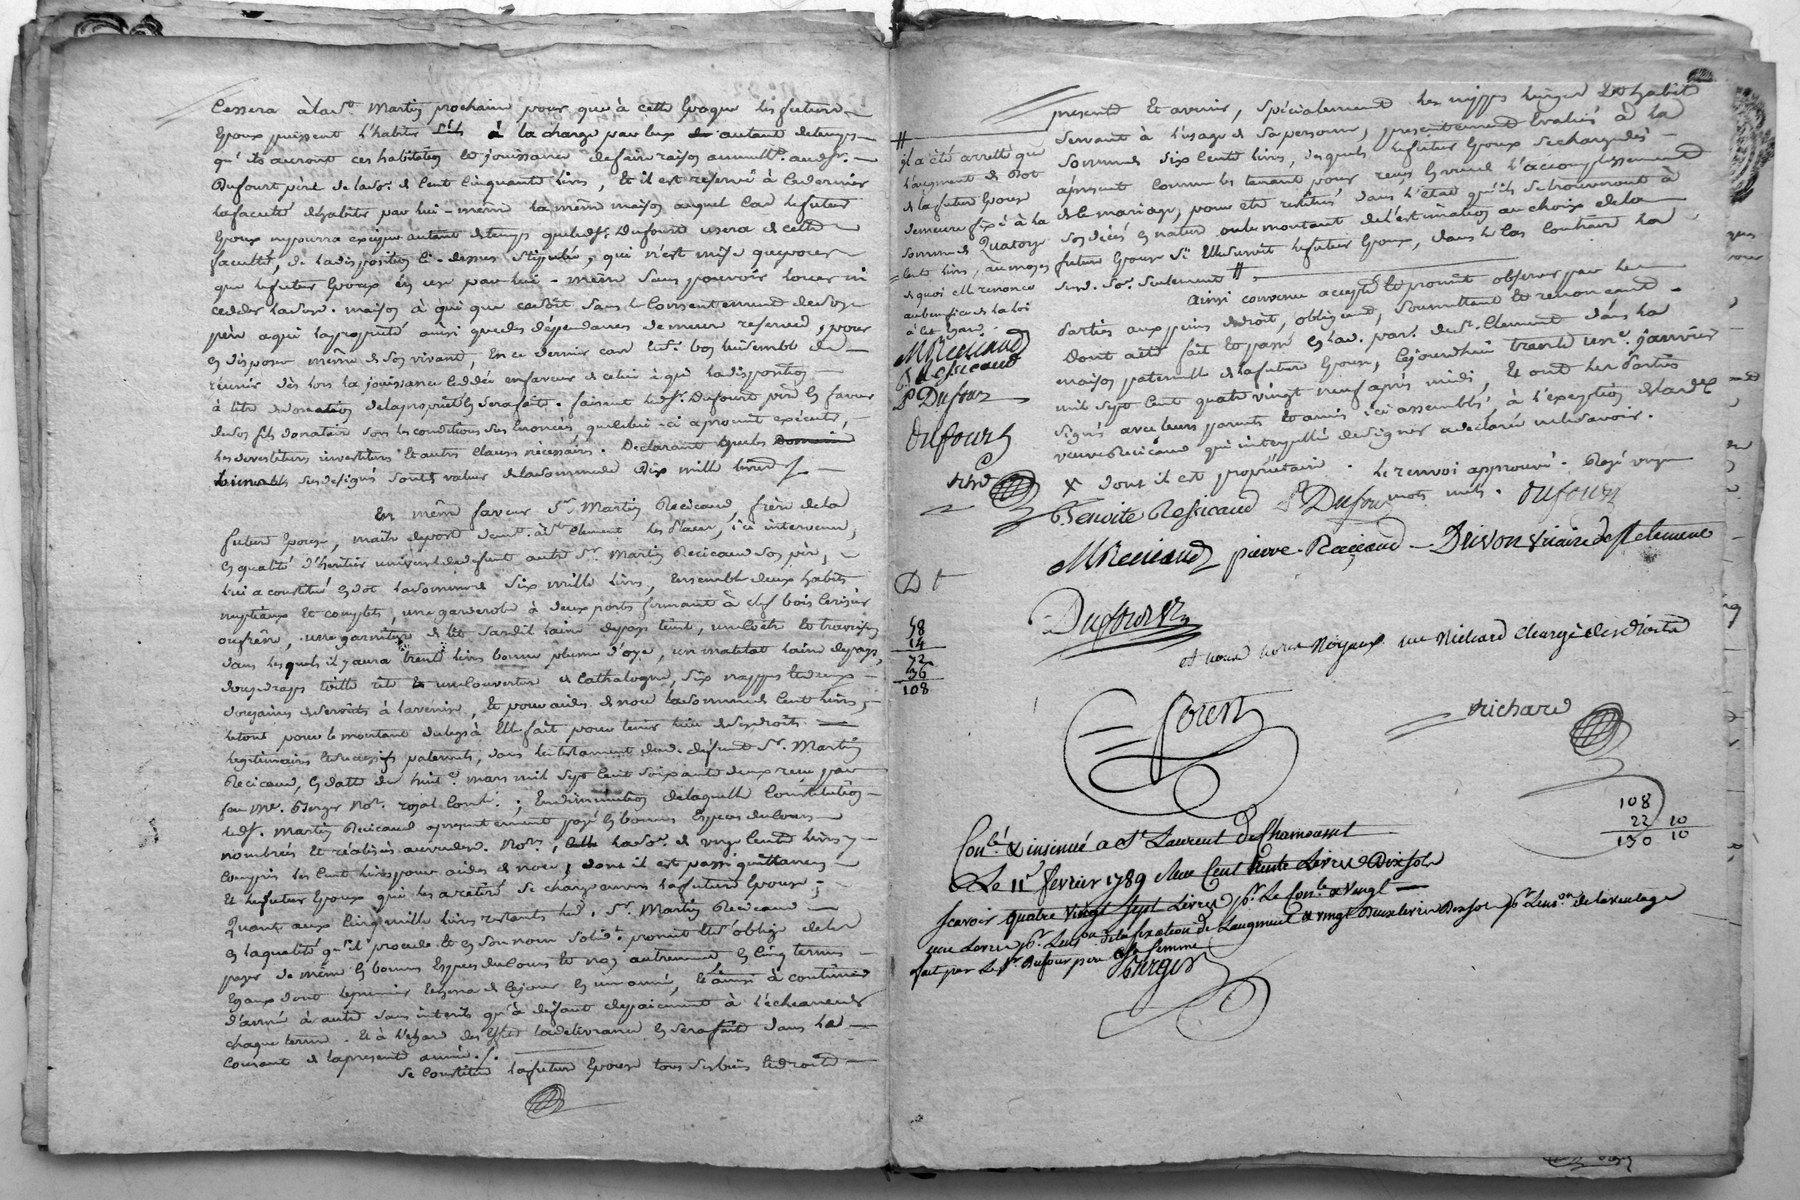 Cessera à la St Martin prochaine pour que à cette Epoque les futurs
Epoux puissent l'habiter à la charge par eux autant de temps
qu'ils auront ces habitation et jouissance de faire raison annuellt. aud. sr.
Dufourt père de la so. de Cent Cinquante livres, Et il est reservé à ce dernier
la faculté d'habiter par lui-même la même maison auquel Cas le futur
Epoux n'y pourra exiger autant de temps que led. sr. Dufourt usera de cette
faculté, de la disposition ci-dessus stipulée, qui n'est mise que pour
que le futur Epoux en use par lui-même sans pouvoir louer ni
ceder lad. maison à qui que ce soit sans le Consentement de son
père a qui la proprieté ainsi que des dépendances demeure reservée, pour
en disposer même de son vivant, En ce dernier cas
réunir dès lors la jouissance cedée en faveur de celui à qui la disposition
à titre de donation de la proprieté en sera fait. faisant led. sr. Dufourt père en faveur
de son fils donataire sous les conditions sus énoncées que celui-ci a promit exécuter,
les devestitures investitures Et autres clauses nécessaires. Déclarant que les
susdesignés sont de valeur de la somme de Dix mille livres
En même faveur Sr. Martin Recicaud, frère de la
future Epouse, maitre de poste demt. à St. Clement les places, ici intervenu,
En qualité d'heritier universel de defunt autre Sr. Martin Recicaud son père,
lui a constitué en dot la somme de six mille livres, Ensemble deux habits
nuptiaux et complets, une garderobe à deux portes fermant à clef bois cerisier
ou frêne, une garniture de lit cardil laine du pays teint, un coêtre et traversin
dans lesquels il y aura trente livres bonne plume d'oye, un matelat laine du pays,
douze draps toille une Couverture de Cathalogne, six nappes et deux
douzaines de serviettes à la venise, Et pour aides de noce la somme de Cent livres,
le tout pour le montant du legs à Elle fait pour tenir lieu de ses droits
legitimaires et successifs paternels, dans le testament dud. defunt Sr. Martin
Recicaud, en datte du huit mars mil sept Cent soixante deux reçu par
feu Me. Berger Nore. royal ; En diminution de laquelle Constitution
led. sr. Martin Recicaud a presentement payé en bonnes Especes du cours
nombrées et réalisées au vu de Nore. la so. de onze Cents livres
compris les Cent livres pour aides de noce, dont il est passé quittance
Et le futur Epoux qui les a retiré se charge envers la future Epouse ;
Quant aux Cinq mille livres restants led. Sr. Martin Recicaud
en la qualité qu'il procede Et en son nom solid. promet et s'oblige de les
payer de même en bonnes Especes du cours et non autrement en Cinq termes
Egaux dont le premier Echera de ce jour en un an, et ainsi à continuer
d'année à autre sans interêts qu'à defaut de paiement à l'echeance de
chaque terme. Et à l'égard des effets la delivrance en sera faite dans le
Courant de la presente année.
Se Constitue la future Epouse tous ses biens et droits
present Et avenir, spécialement les nippes linges Et habits
servant à l'usage de sa personne, presentement Evalués à la
somme de six Cents livres, desquels le futur Epoux se charge dès
apresent Comme les tenant pour reçus En vue de l'accomplissement
de le mariage, pour être restitués dans l'état qu'ils se trouveront à
son décès en nature ou le montant de l'estimation au choix de la
future Epouse si Elle survit le futur Epoux, dans le Cas Contraire la
susd. so. seulement #
#
il a été arretté que
l'augment de dot
de la future Epouse
demeure fixé à la
somme de Quatorze
Cents livres, au moyen
de quoi elle renonce
au benefice de la loi
à cet egard.
MRecicaud
B Ressicaud
P Dufour
Dufourt
Ainsi convenu accepté Et promit observer par les
Parties aux peines de droit, obligeant, soumettant Et renonceant
Dont acte fait Et passé en lad. par. de St. Clement dans la
maison paternelle de la future Epouse, Cejourdhui trente un janvier
mil sept Cent quatre vingt neuf après midi, Et ont les Parties
signés avec leurs parents Et amis ici assemblés à l'exception de lad.
veuve Recicaud qui interpellée de signer a declaré ne le savoir.
X dont il est proprietaire. le renvoi approuvé. Rayé onze
mots nuls.
Benoite Ressicaud P Dufour Dufourt
MRecicaud pierre Recicaud Drivon Vicaire de St clement
Dufour
et nous nore Royaux me Richard chargé des droits
Forest
Richard
D t
58
14
72
36
108
108
22 10
130 10
Conlé & insinué a St Laurent de Chamousset
Le 11e fevrier 1789 Reçu Cent trente Livres Dix sols
scavoir quatre vingt sept Livres pr. Le Con.le & vingt
une Livres pr. Lins.on de la fixation de Laugment & vingt deux livres Dix sols pr. Lins.on de lavantage
fait par Le Sr. Dufour pere & sa femme
Berger